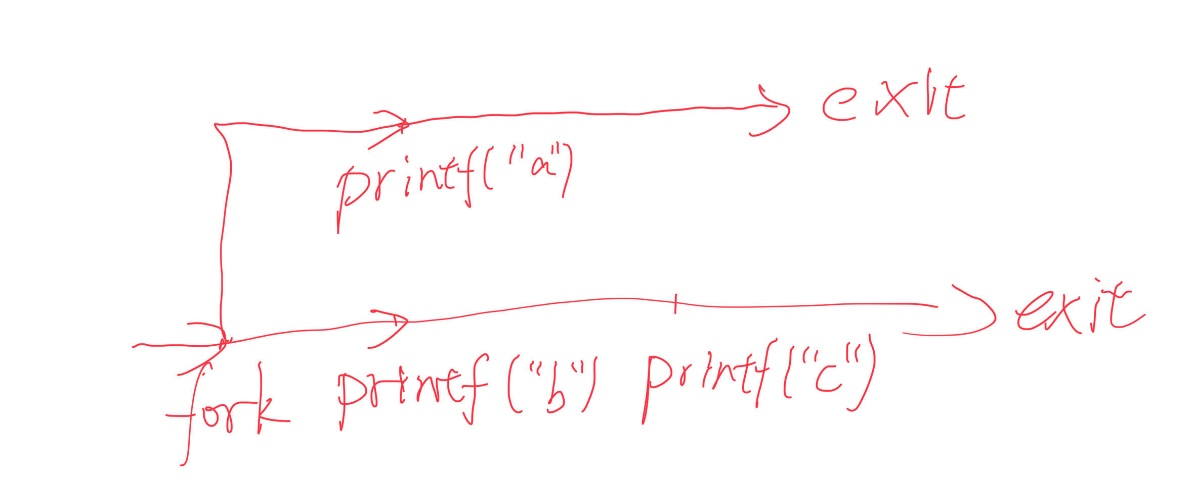 exit
printf("a")
exit
fork printf("b") printf("c")